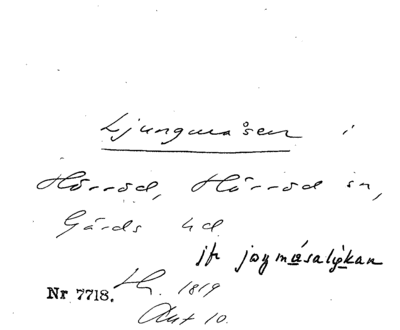 Ljungmåsen i
Hörröd, Hörröd sn,
Gärds hd
jfr jøŋmåsalýkan
Nr 7718. Lh. 1819
Akt 10.